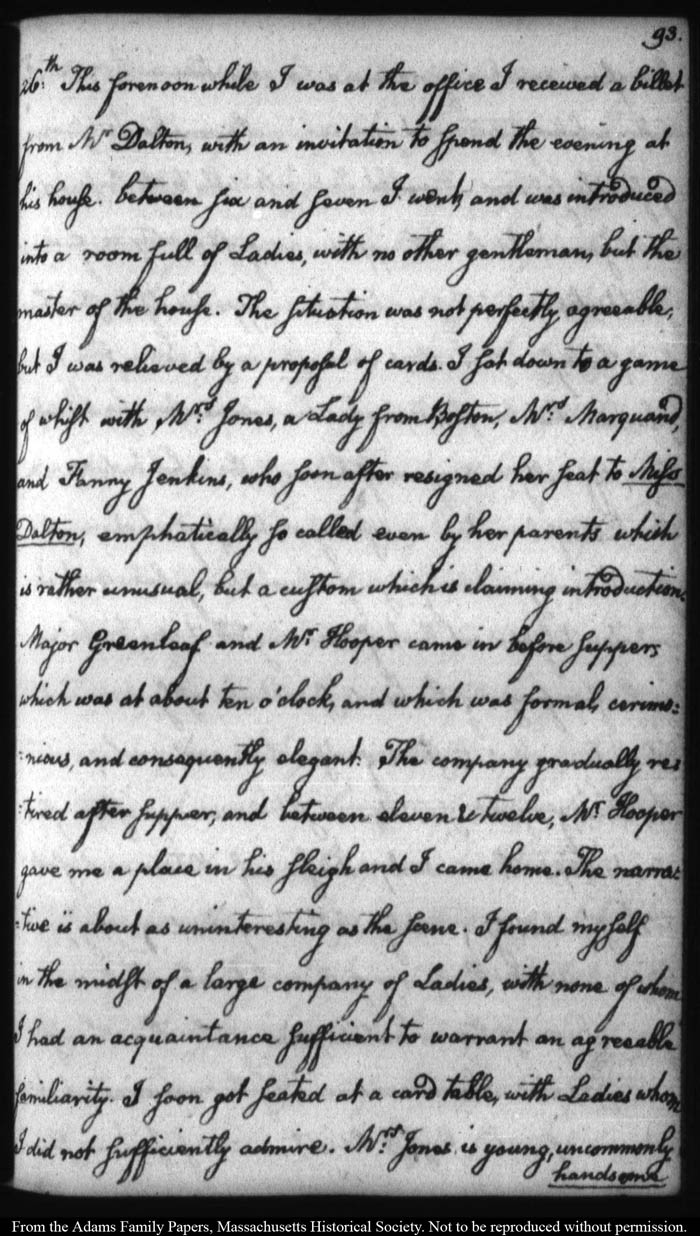 93.
26:th This forenoon while I was at the office I received a billet
from Mr Dalton, with an invitation to spend the evening at
his house. between six and seven I went, and was introduced
into a room full of Ladies, with no other gentleman, but the
master of the house. The situation was not perfectly agreeable,
but I was relieved by a proposal of cards. I sat down to a game
of whist with, Mrs: Jones, a Lady from Boston, Mrs: Marquand,
and Fanny Jenkins, who soon after resigned her seat to Miss
Dalton, emphatically so called even by her parents which
is rather unusual, but a custom which is claiming introduction.
Major Greenleaf and Mr. Hooper came in before supper,
which was at about ten o'clock, and which was formal, cerimo:
:nious, and consequently elegant: The company gradually re:
:tired after supper, and between eleven & twelve, Mr. Hooper
gave me a place in his sleigh and I came home. The narra:
:tive is about as uninteresting as the scene. I found myself
in the midst of a large company of Ladies, with none of whom
I had an acquaintance sufficient to warrant an agreeable
familiarity. I soon got seated at a card table, with Ladies whom
I did not sufficiently admire. Mrs: Jones is young, uncommonly
handsome
From the Adams Family Papers, Massachusetts Historical Society. Not to be reproduced without permission.